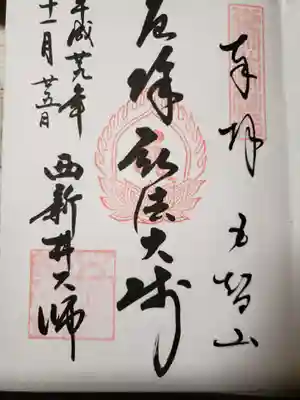 奉拝
五智山
厄除弘法大師
西新井大師
平成廿九年
十一月廿五日